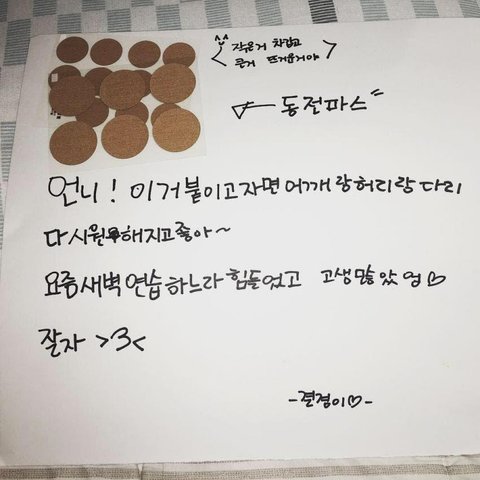 작은거 차갑고
큰거 뜨거운거야
동전파스
언니! 이거 붙이고자면 어깨랑허리랑 다리
다 시원해지고좋아~
요즘새벽연습하느라 힘들었고 고생많았엉♡
잘자 >3<
-결경이♡-